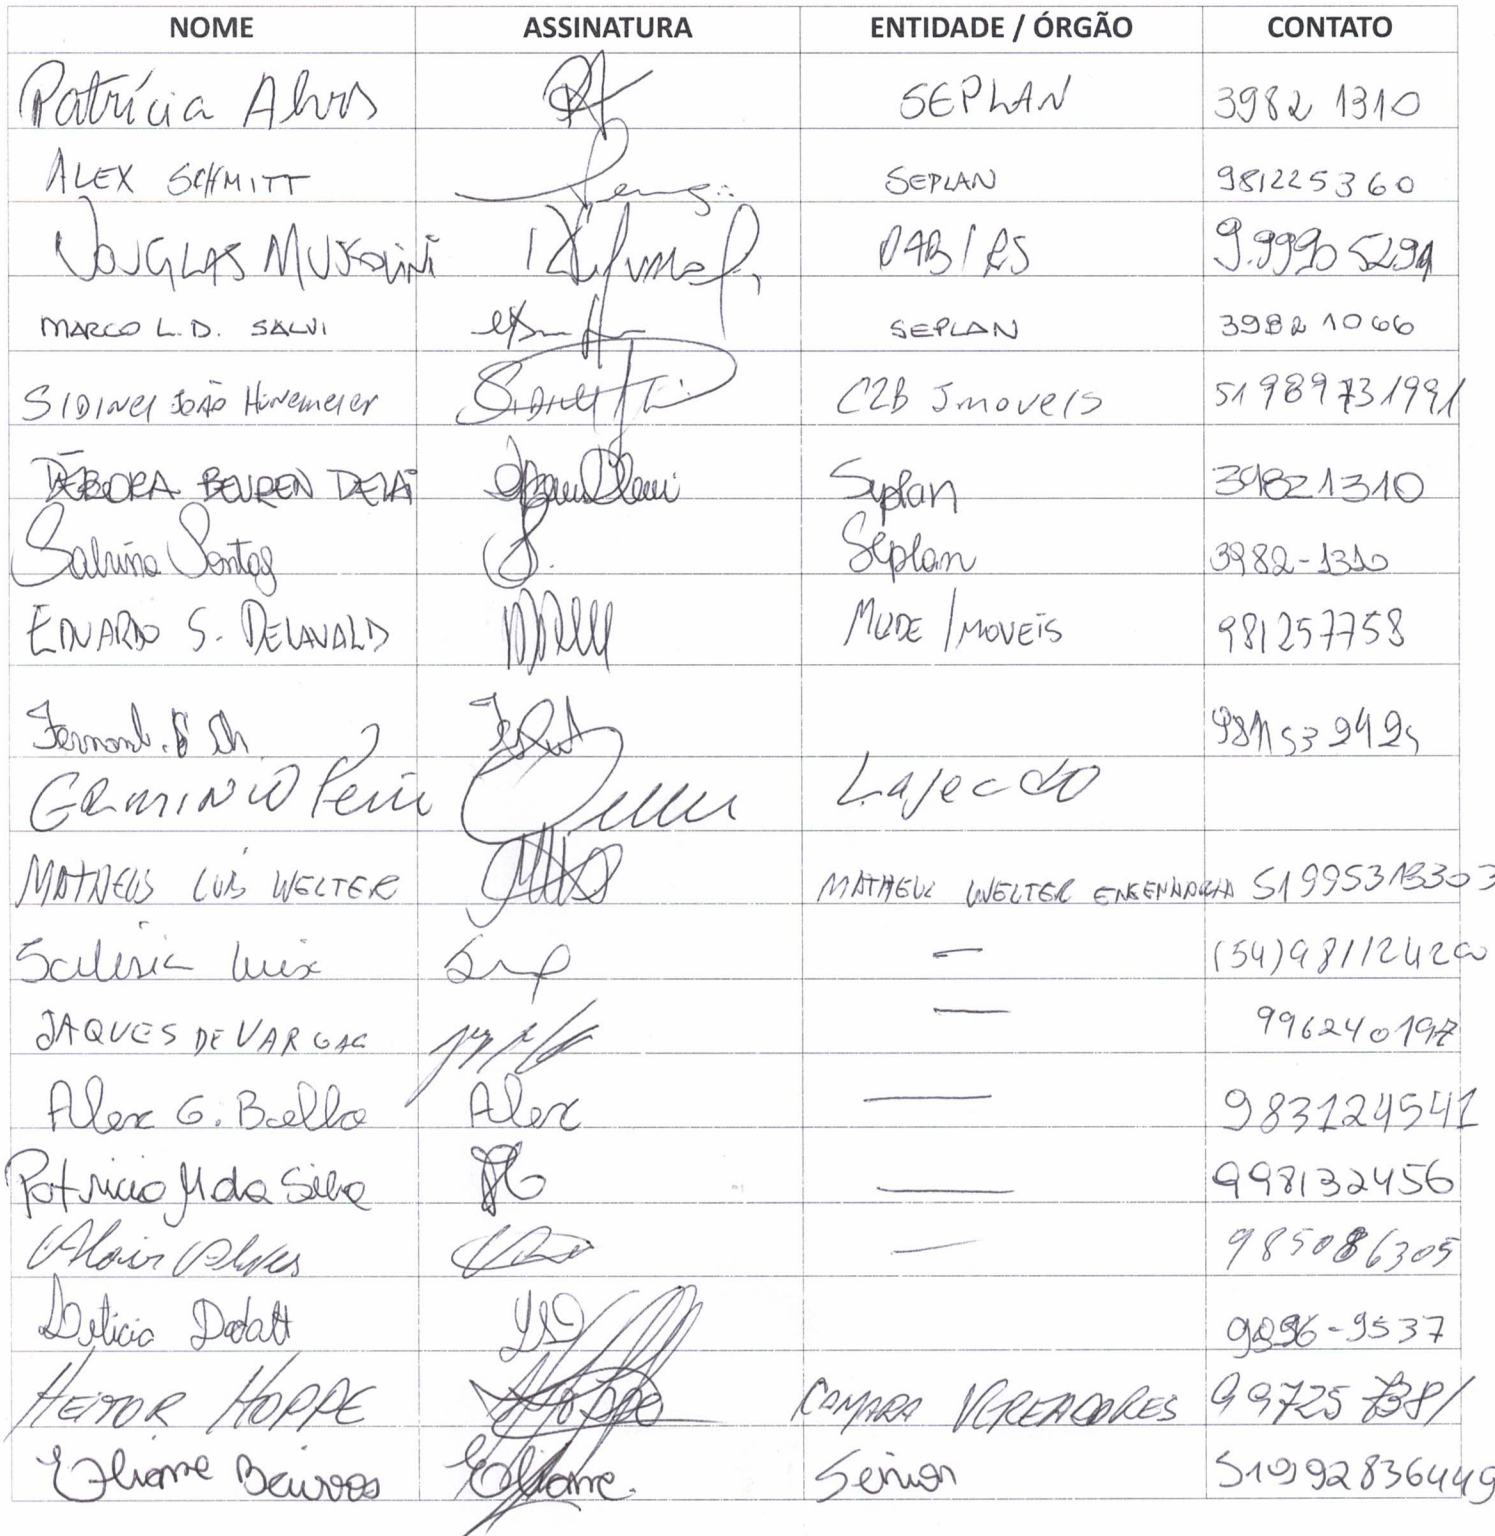 NOME ASSINATURA ENTIDADE / ÓRGÃO CONTATO
Patrícia Alves SEPLAN 3982 1310
ALEX SCHMITT SEPLAN 981225360
DOUGLAS MUSSOLINI OAB/RS 9.9990 5291
MARCO L.D. SALVI SEPLAN 3982 1066
SIDINEI JOÃO Hunemeier C2B Imoveis 51 989731991
DÉBORA BEUREN DELAI Seplan 39821310
Sabrina Sontag S. Seplan 3982-1310
EDUARDO S. DELAVALD MUDE IMOVEIS 981257758
Fernand.
GERMINIO Lajeado
MATHEUS LUIS WELTER MATHEUS WELTER ENGENHARIA 51 995313303
Luix — (54) 981124200
JAQUES DE VARGAS — 996240197
Alex G. Bella Alex — 983124541
Patricia M da Silva — 998132456
Alair Alves — 985086305
Leticia Dodatt 9896-9537
HEITOR HOPPE Hoppe CAMARA VEREADORES 99725 7381
Eliane Beirros Eliane. Senior 51992836449